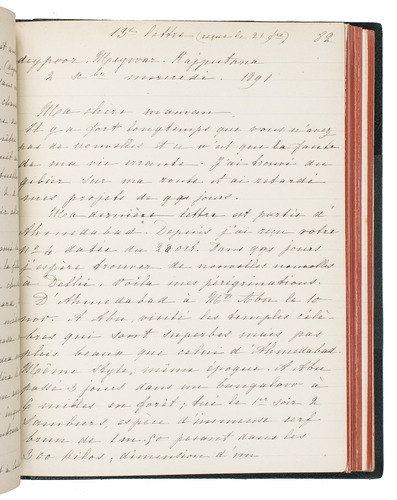 13e lettre (reçue le 21 fre) 82
deypoor. Meywar. Rajputana
2 Xbre mercredi. 1891
Ma chère maman.
Il y a fort longtemps que vous n'avez
pas de nouvelles et ce n'est que la faute
de ma vie errante. J'ai trouvé du
gibier sur ma route et ai retardé
mes projets de qqs jours.
Ma dernière lettre est partie d'
Ahmedabad. Depuis j'ai reçu votre
no 4 datée du 28 oct. Dans qqs jours
j'espère trouver de nouvelles nouvelles
à Delhi. Voila mes pérégrinations.
D'Ahmedabad à Mt Abu le 10
nov. A Abu, visité les temples célè-
bres qui sont superbes mais pas
plus beaux que celui d'Ahmedabad.
Même style, même époque. A Abu
passé 3 jours dans un bungalow à
6 milles en forêt ; tué le 1er soir 2
Samburs, espèce d'immense cerf
brun de 1 m. 50 pesant dans les
300 kilos ; dimension d'un